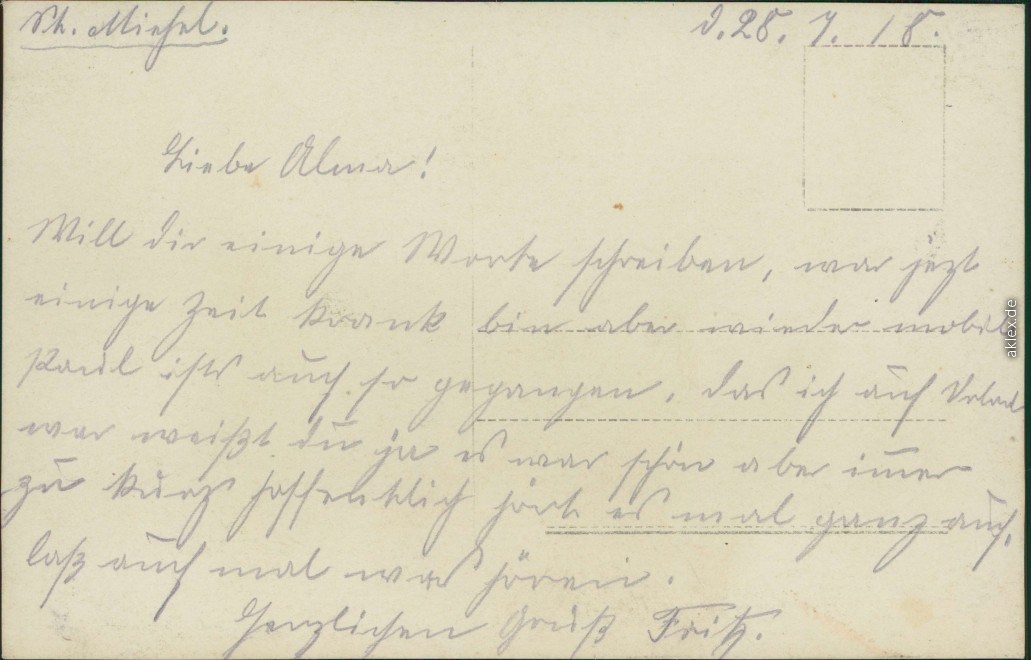 St. Mihiel. d. 28. 7. 18.
Liebe Alma!
Will dir einige Worte schreiben, war jezt
einige Zeit krank bin aber wieder mobil
Paul ists auch so gegangen, das ich auf Urlaub
war weißt du ja es war schön aber immer
zu kurz hoffentlich hört es mal ganz auf,
laß auch mal was hören.
Herzlichen Gruß Fritz.
aklex.de